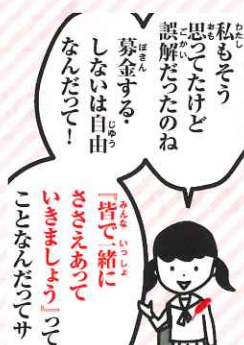 私もそう
思ってたけど
誤解だったのね
募金する・
しないは自由
なんだって！
『皆で一緒に
ささえあって
いきましょう』って
ことなんだってサ